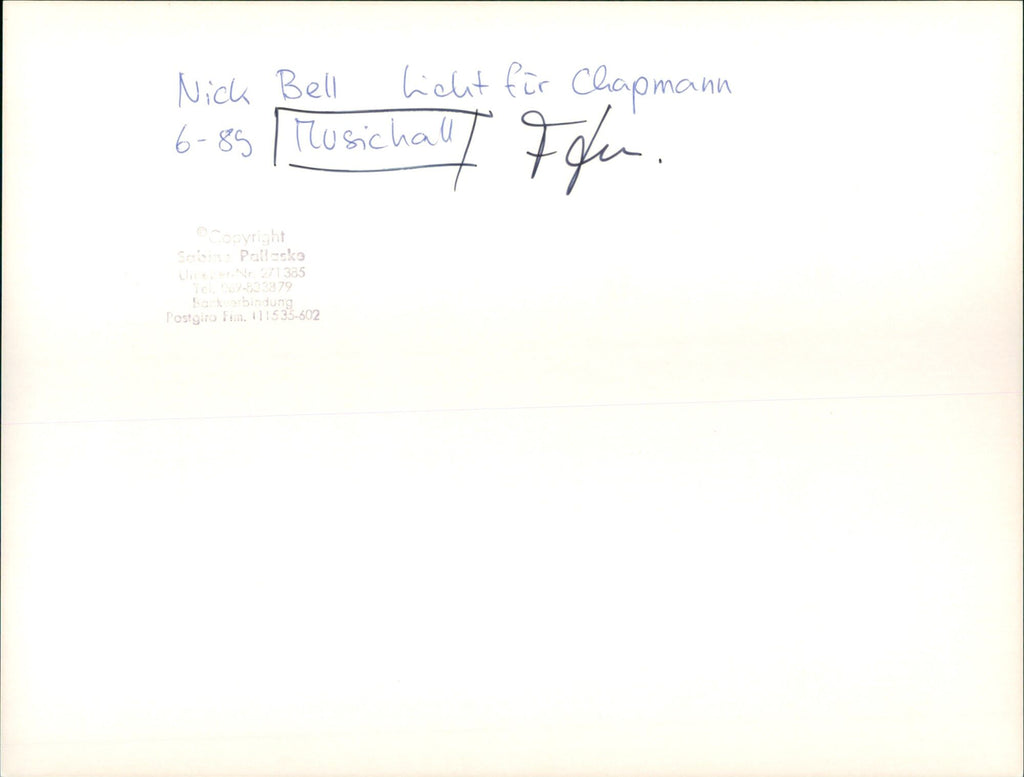 Nick Bell Licht für Chapmann
6-89 Musichall
© Copyright
Sabine Pallaske
271385
Bankverbindung
Postgiro Ffm. 111535-602